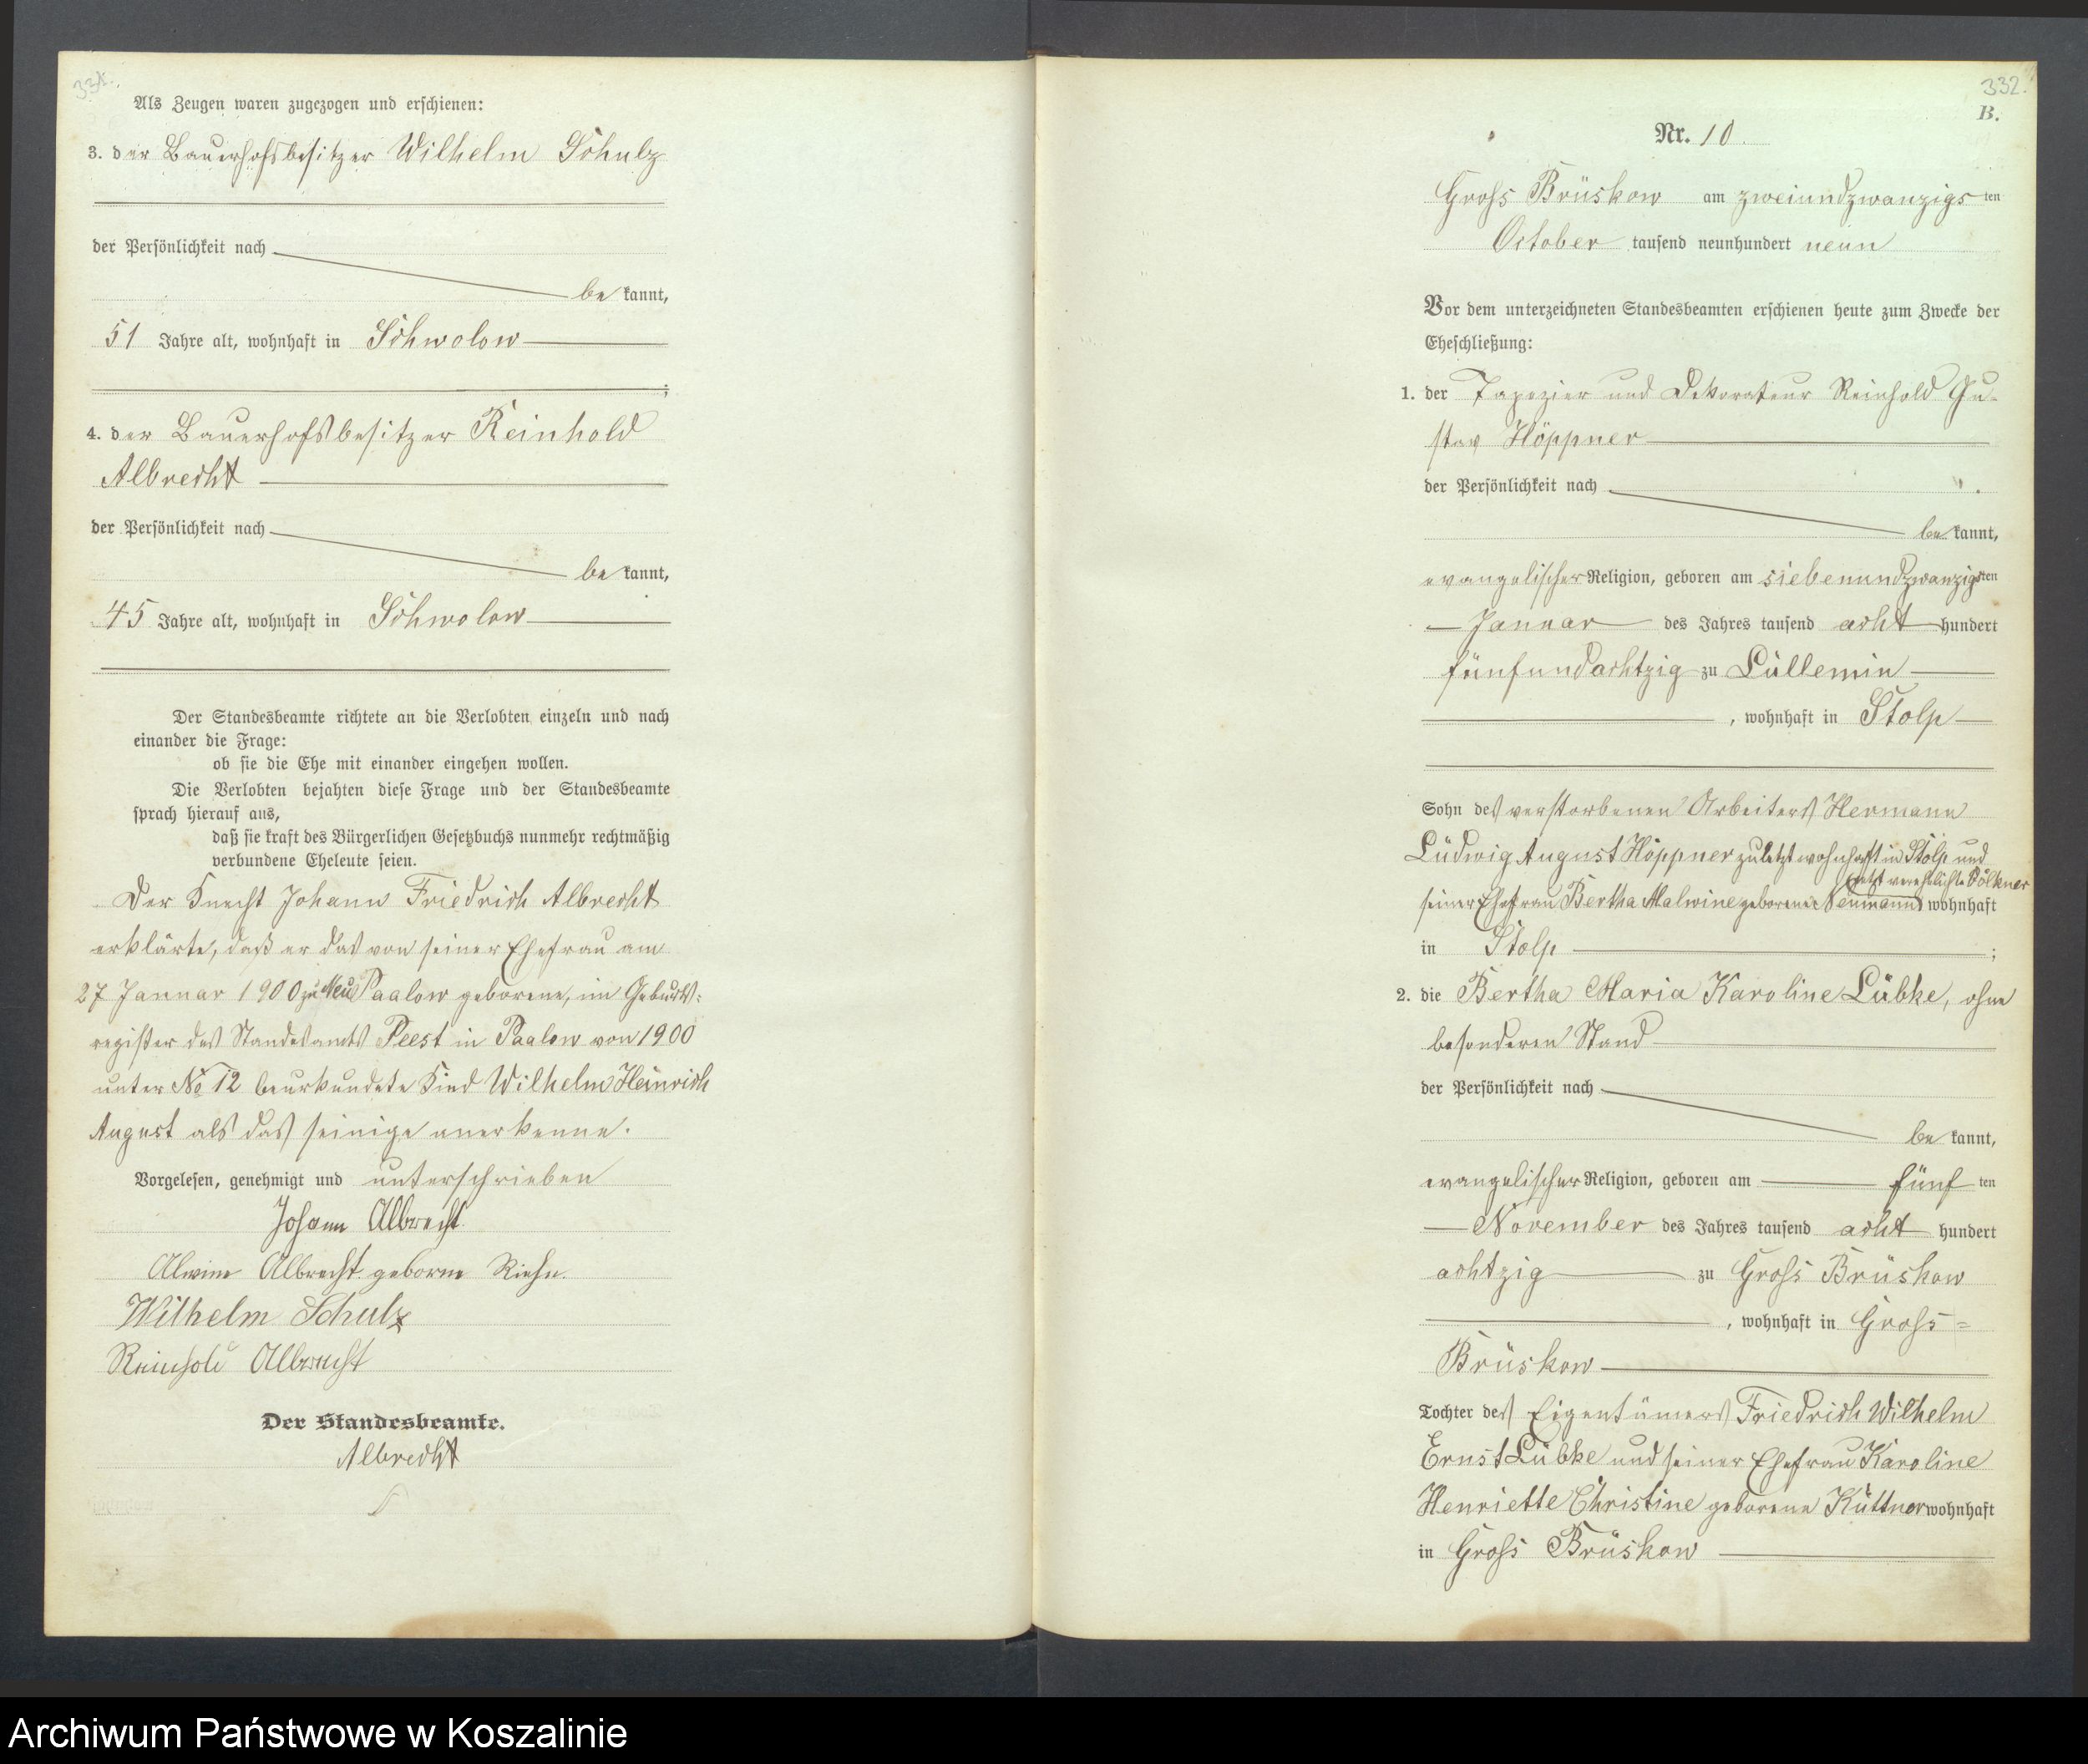 331.
Als Zeugen waren zugezogen und erschienen:
3. der Bauerhofsbesitzer Wilhelm Schulz
der Persönlichkeit nach
be kannt,
51 Jahre alt, wohnhaft in Schwolow
;
4. der Bauerhofsbesitzer Reinhold
Albrecht
der Persönlichkeit nach
be kannt,
45 Jahre alt, wohnhaft in Schwolow
Der Standesbeamte richtete an die Verlobten einzeln und nach
einander die Frage:
ob sie die Ehe mit einander eingehen wollen.
Die Verlobten bejahten diese Frage und der Standesbeamte
sprach hierauf aus,
daß sie kraft des Bürgerlichen Gesetzbuchs nunmehr rechtmäßig
verbundene Eheleute seien.
Der Knecht Johann Friedrich Albrecht
erklärte, daß er das von seiner Ehefrau am
27 Januar 1900 zu Neu Paalow geborene, im Geburts-
register des Standesamts Peest in Paalow von 1900
unter No 12 beurkundete Kind Wilhelm Heinrich
August als das seinige anerkenne.
Vorgelesen, genehmigt und unterschrieben
Johann Albrecht.
Alwine Albrecht geborne Riehn.
Wilhelm Schulz
Reinhold Albrecht
Der Standesbeamte.
Albrecht
332.
B.
Nr. 10.
Gross Brüskow am zweiundzwanzigs ten
October tausend neunhundert neun
Vor dem unterzeichneten Standesbeamten erschienen heute zum Zwecke der
Eheschließung:
1. der Tapezier und Dekorateur Reinhold Gu-
stav Höppner
der Persönlichkeit nach
be kannt,
evangelischer Religion, geboren am siebenundzwanzigsten
Januar des Jahres tausend acht hundert
fünfundachtzig zu Lüllemin
, wohnhaft in Stolp
Sohn des verstorbenen Arbeiters Hermann
Ludwig August Höppner zuletzt wohnhaft in Stolp und
jetzt verehelichte Völkner
seiner Ehefrau Bertha Malwine geborene Neumann wohnhaft
in Stolp ;
2. die Bertha Maria Karoline Lübke, ohne
besonderen Stand
der Persönlichkeit nach
be kannt,
evangelischer Religion, geboren am fünf ten
November des Jahres tausend acht hundert
achtzig zu Gross Brüskow
, wohnhaft in Gross=
Brüskow
Tochter des Eigentümers Friedrich Wilhelm
Ernst Lübke und seiner Ehefrau Karoline
Henriette Christine geborene Küttner wohnhaft
in Gross Brüskow
Archiwum Państwowe w Koszalinie